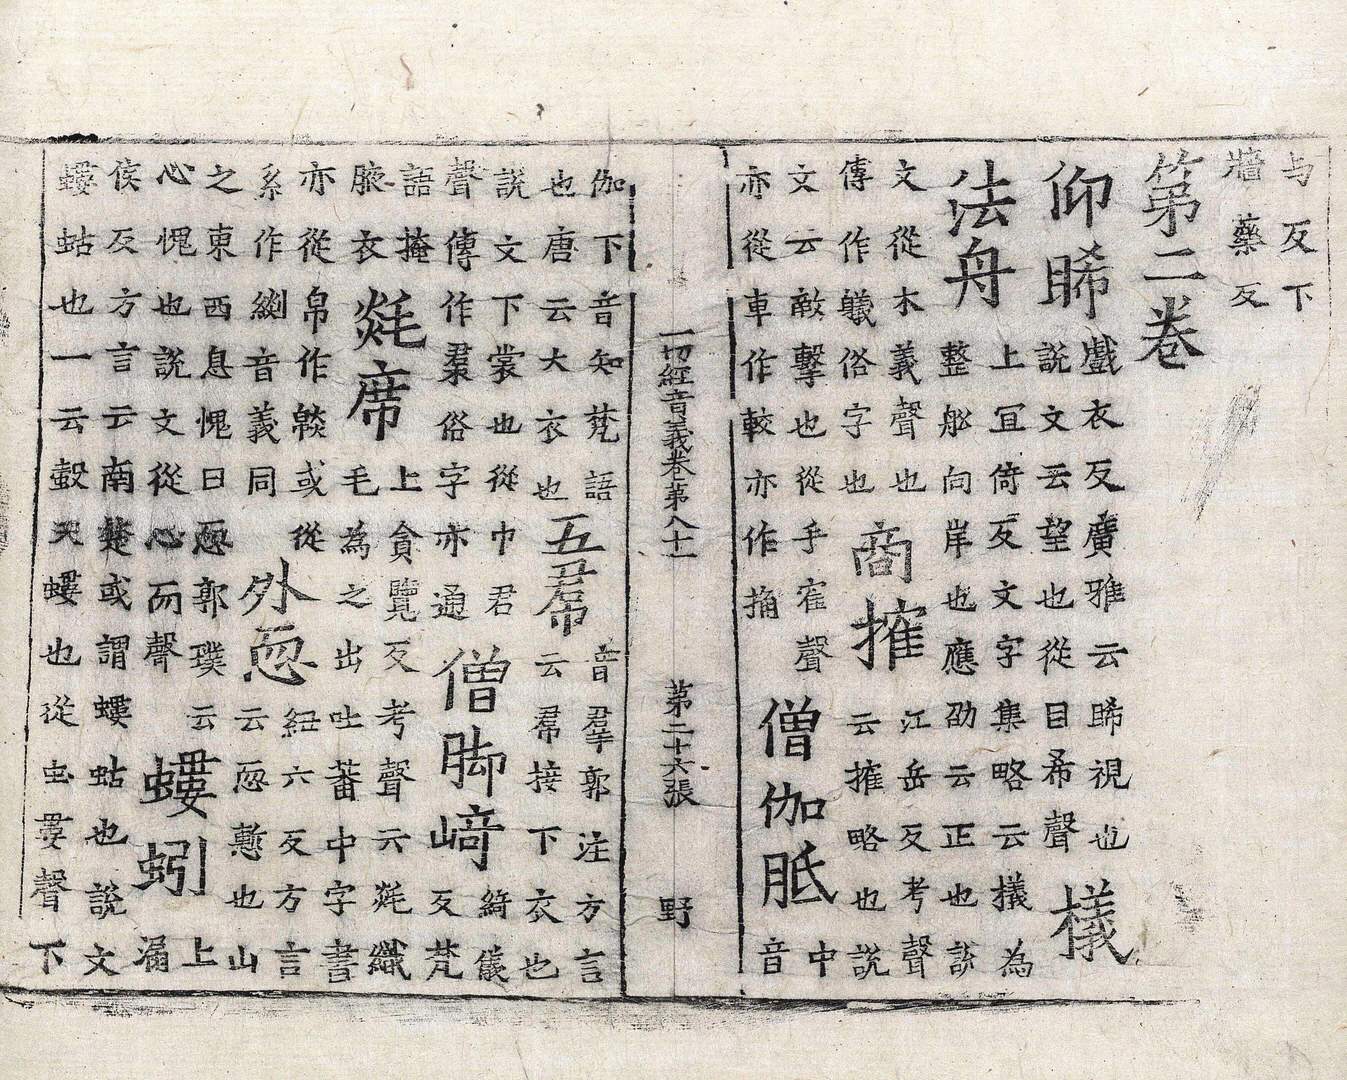 与反下
牆藥反
第二卷
仰睎戲衣反廣雅云睎視也
說文云望也從目希聲檥
法舟上冝倚反文字集略云檥為
整舩向岸也應劭云正也說
文從木義聲也商搉江岳反考聲
傳作艤俗字也云搉略也說
文云敵擊也從手隺聲僧伽胝中
亦從車作較亦作捔音
一切經音義卷第八十一 第二十六張 野
伽下音知梵語五帬音羣郭注方言
也唐云大衣也云帬接下衣也
說文下裳也從巾君僧脚崎綺儀
聲傳作裠俗字亦通反梵
語掩上貪覽反考聲云毯織
腋衣毯席毛為之出吐蕃中字書
亦從帛作緂或從外恧紐六反方言
系作緂音義同云恧慙也山
之東西息愧曰恧郭璞云上
心愧也說文從心而聲螻蚓漏
侯反方言云南楚或謂螻蛄也說文
螻蛄也一云螜天螻也從虫婁聲下